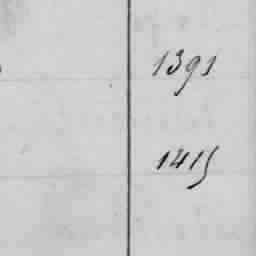 1391
1415